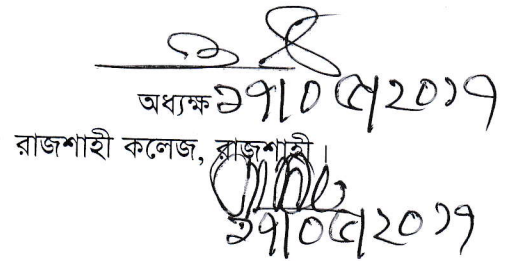 অধ্যক্ষ ১৭/০৫/২০১৭
রাজশাহী কলেজ, রাজশাহী।
১৭/০৫/২০১৭